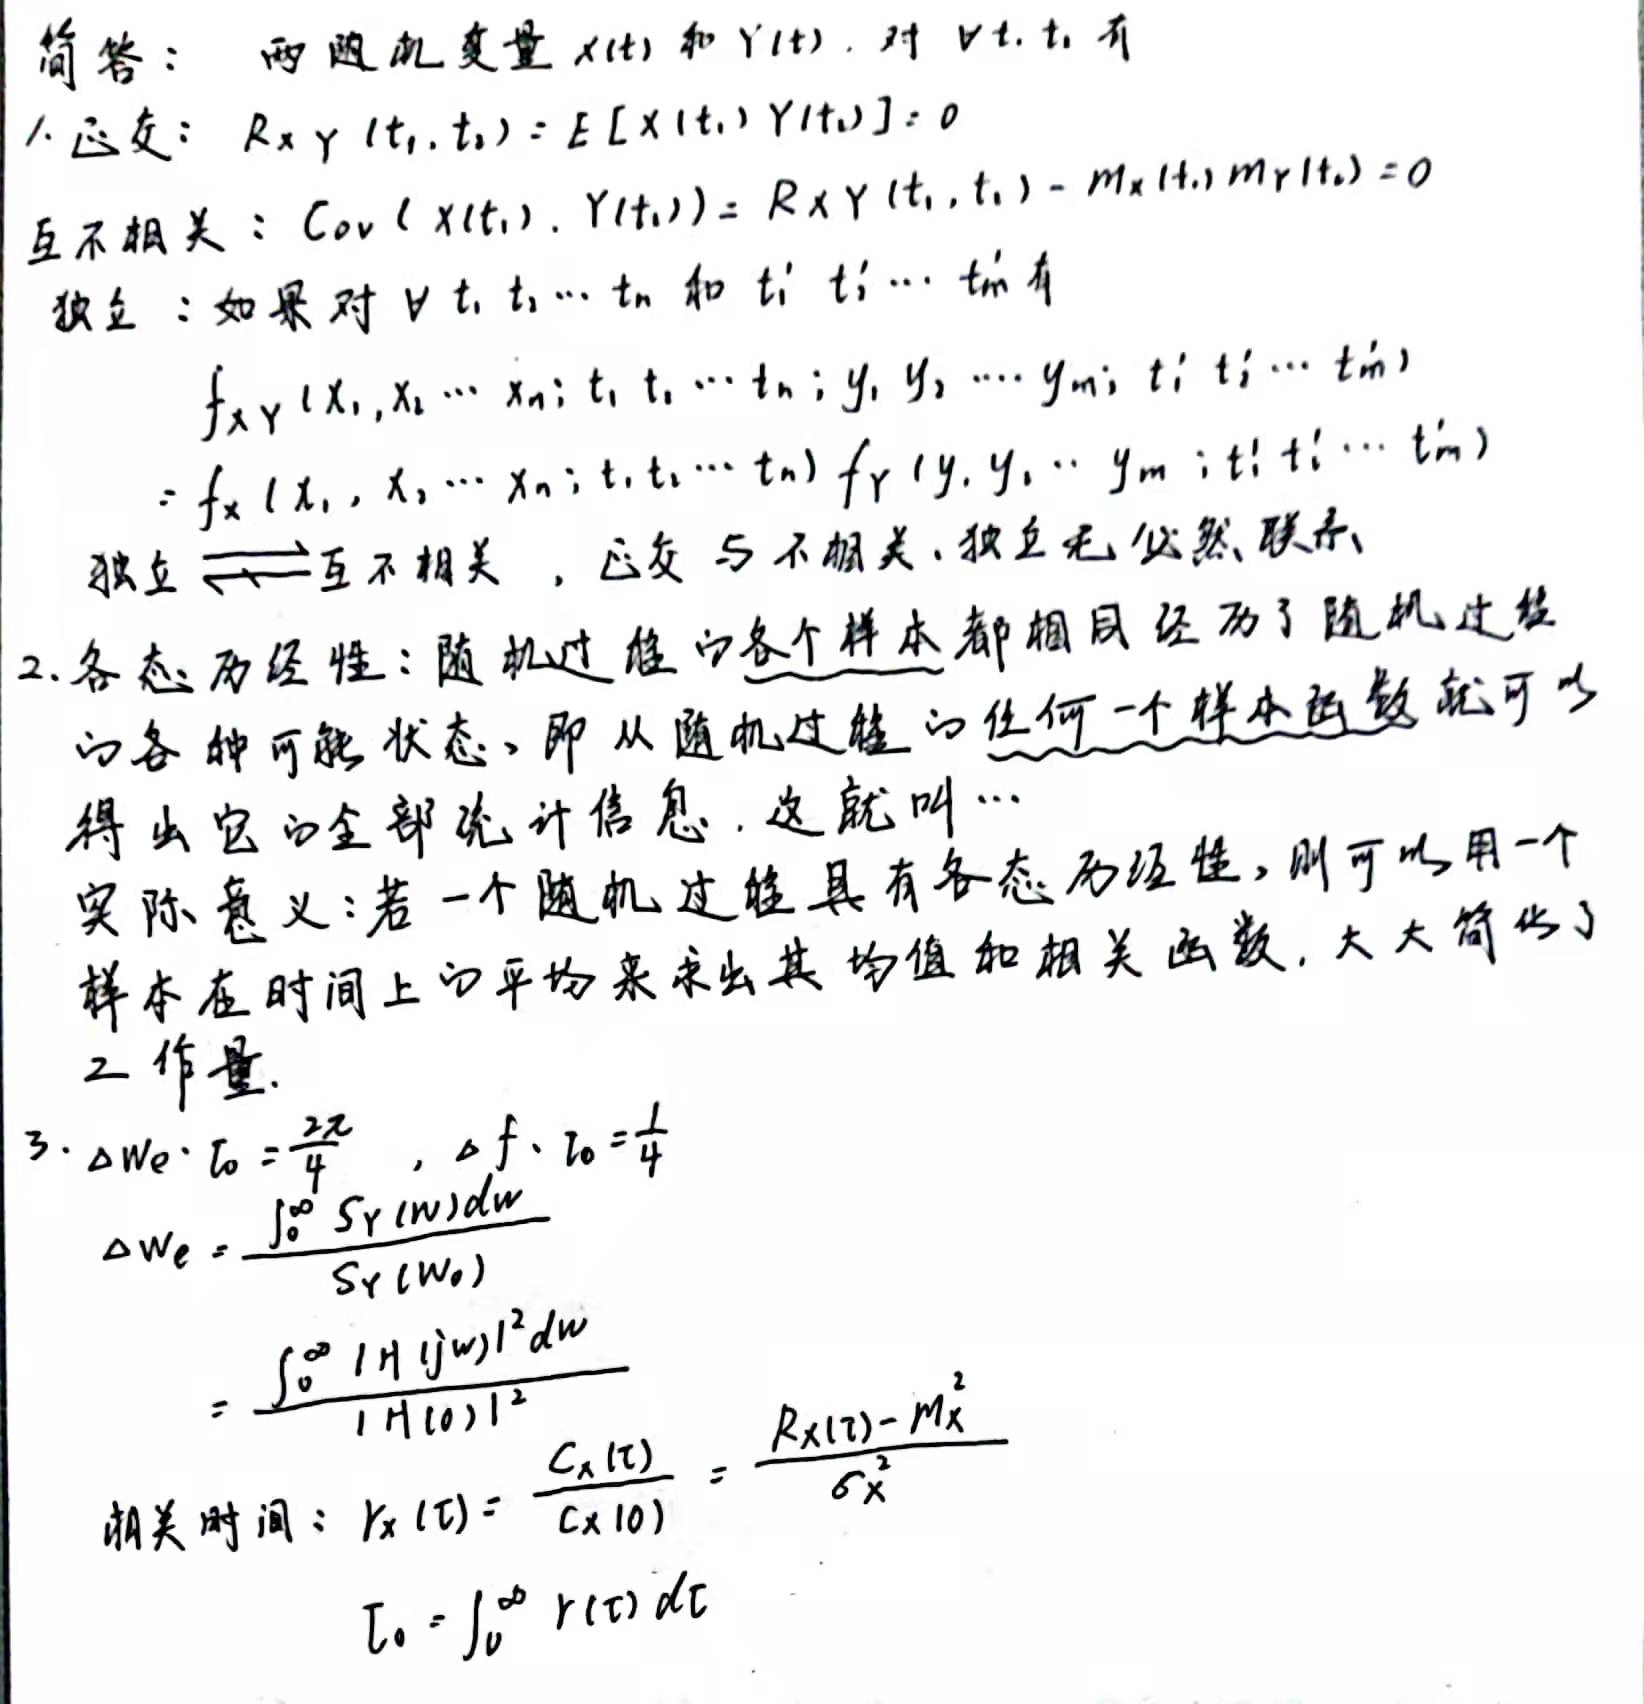 简答： 两随机变量 X(t) 和 Y(t). 对 ∀ t₁ t₂ 有
1. 正交： R_XY(t₁, t₂) = E[X(t₁) Y(t₂)] = 0
互不相关： Cov(X(t₁), Y(t₂)) = R_XY(t₁, t₂) - m_X(t₁) m_Y(t₂) = 0
独立：如果对 ∀ t₁ t₂ ⋯ tₙ 和 t₁' t₂' ⋯ tₘ' 有
f_XY(x₁, x₂ ⋯ xₙ; t₁ t₂ ⋯ tₙ; y₁ y₂ ⋯ yₘ; t₁' t₂' ⋯ tₘ')
= f_X(x₁, x₂ ⋯ xₙ; t₁ t₂ ⋯ tₙ) f_Y(y₁ y₂ ⋯ yₘ; t₁' t₂' ⋯ tₘ')
独立 ⇌ 互不相关，正交与不相关、独立无必然联系、
2. 各态历经性：随机过程的各个样本都相同经历了随机过程
的各种可能状态，即从随机过程的任何一个样本函数就可以
得出它的全部统计信息. 这就叫⋯
实际意义：若一个随机过程具有各态历经性，则可以用一个
样本在时间上的平均来求出其均值和相关函数，大大简化了
工作量.
3. ΔWe·τ₀ = 2π/4 , Δf·τ₀ = 1/4
ΔWe = ∫₀^∞ S_Y(w)dw / S_Y(w₀)
= ∫₀^∞ |H(jw)|² dw / |H(0)|²
相关时间： r_X(τ) = C_X(τ)/C_X(0) = (R_X(τ) - m_X²)/σ_X²
τ₀ = ∫₀^∞ r(τ) dτ